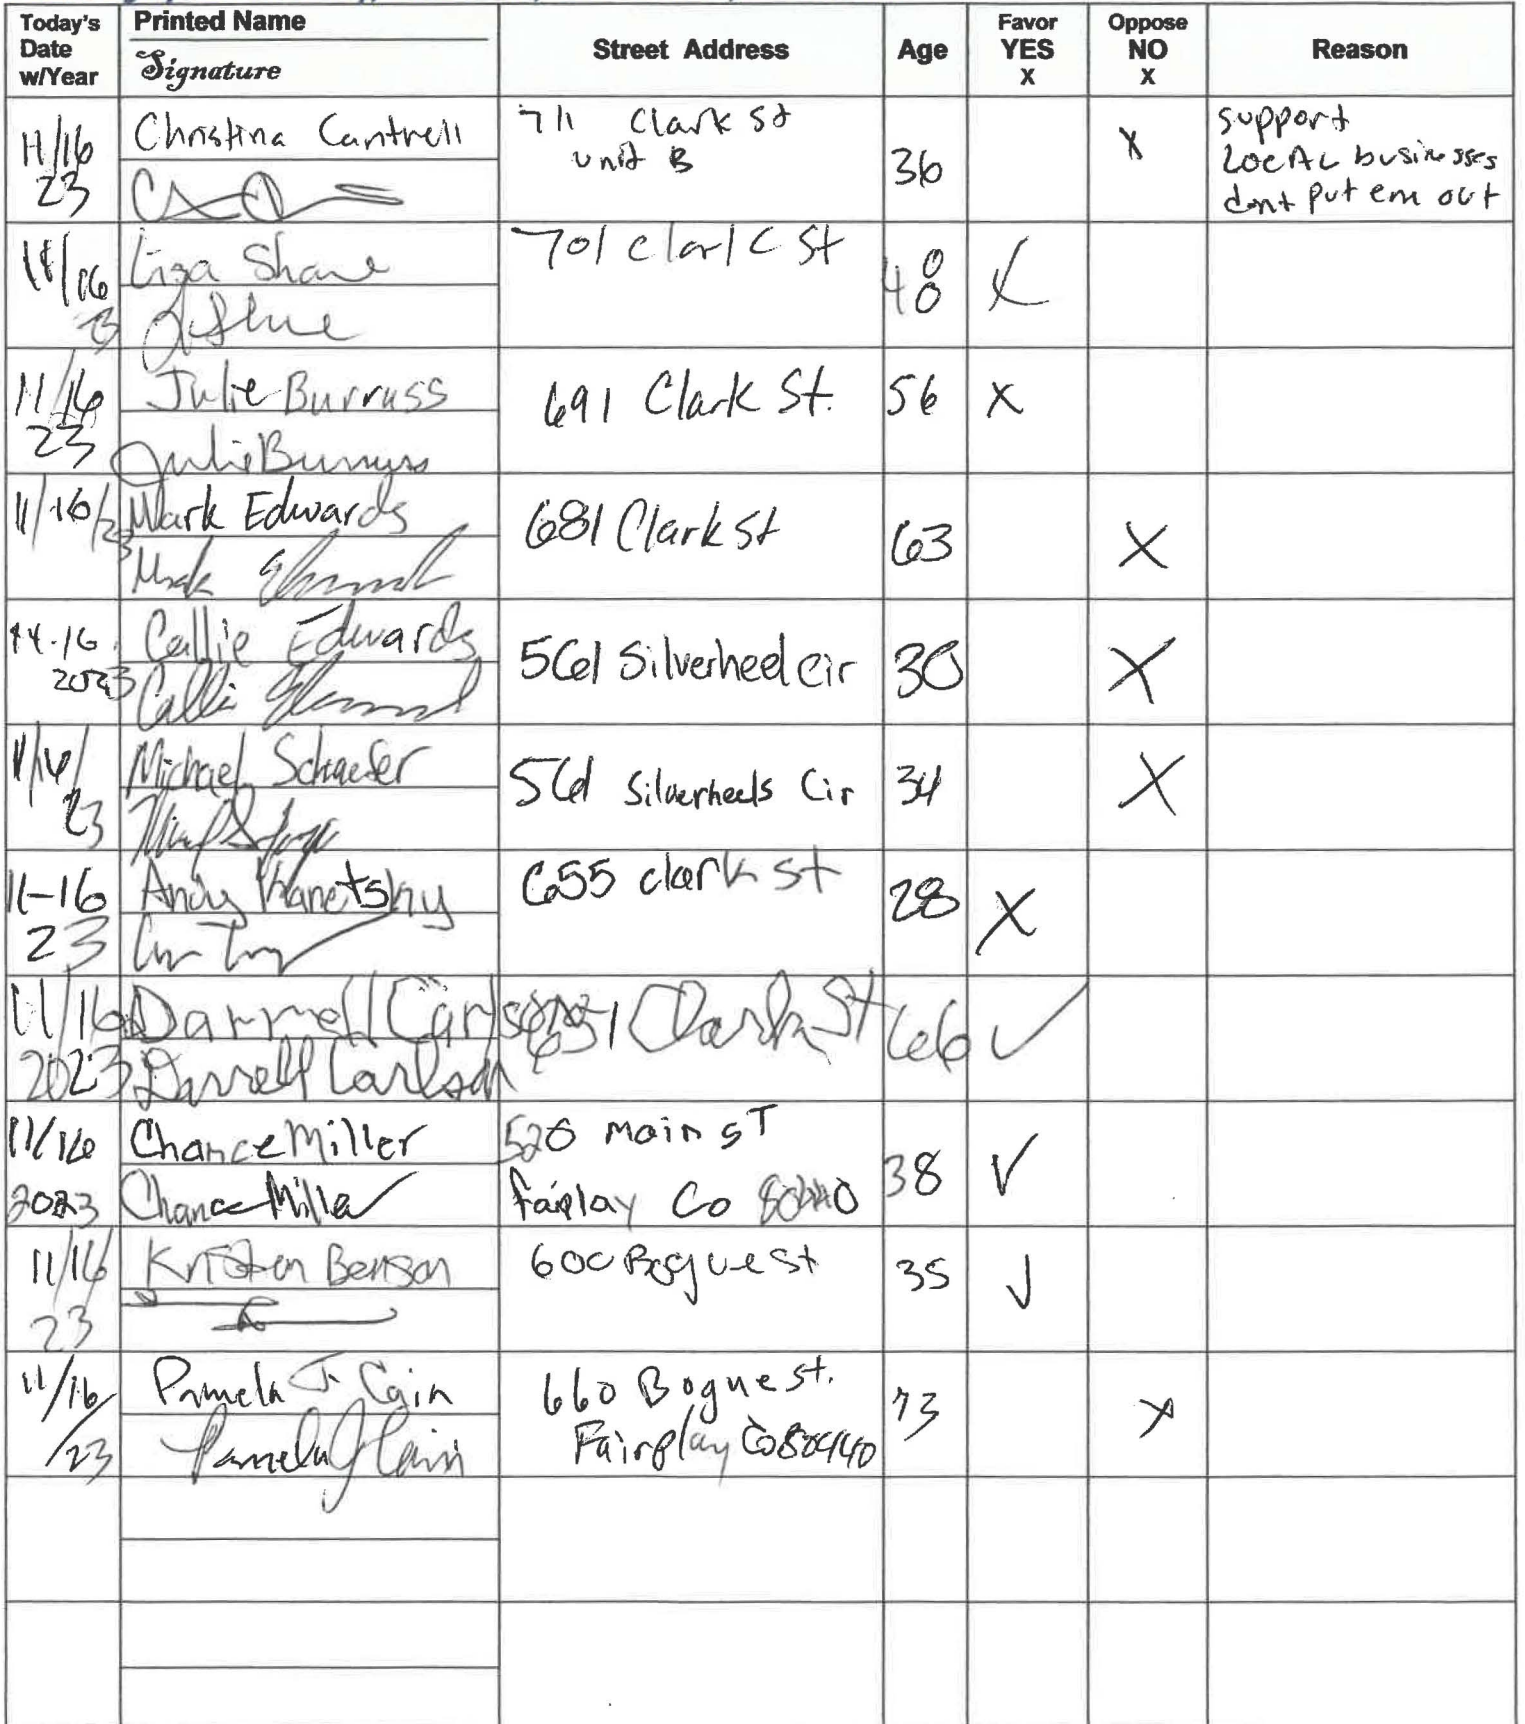 Today's Date w/Year Printed Name Signature Street Address Age Favor YES x Oppose NO x Reason
11/16 23 Christina Cantrell 711 Clark St unit B 36 x support LOCAL businesses dont put em out
11/16 23 Liza Shane 701 Clark St 48 ✓
11/16 23 Julie Burruss Julie Burruss 691 Clark St. 56 x
11/16/23 Mark Edwards Mark Edwards 681 Clark St 63 X
11-16 2023 Callie Edwards Callie Edwards 561 Silverheel Cir 30 X
11/16/23 Michael Schaefer 561 Silverheels Cir 34 X
11-16 23 Andy 655 clark st 28 X
11/16 2023 Darrell Carlson Darrell Carlson 651 Clark St 66 ✓
11/16 2023 Chance Miller Chance Miller 520 Main ST Fairplay Co 80440 38 ✓
11/16 23 Kristen Benson 600 Bogue St 35 ✓
11/16/23 Pamela J Cain Pamela J Cain 660 Bogue St. Fairplay Co 80440 73 x